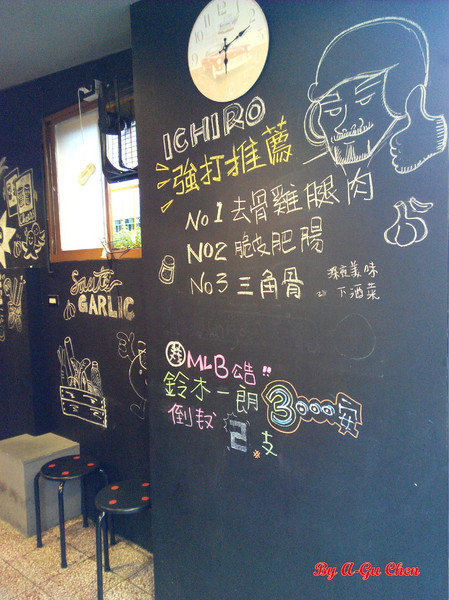 ICHIRO
強打推薦
No 1 去骨雞腿肉
No 2 脆皮肥腸
No 3 三角骨
深夜美味
下酒菜
Saute
GARLIC
MLB公告!!
鈴木一朗 3000安
倒數 2 支
By A-Gu Chen